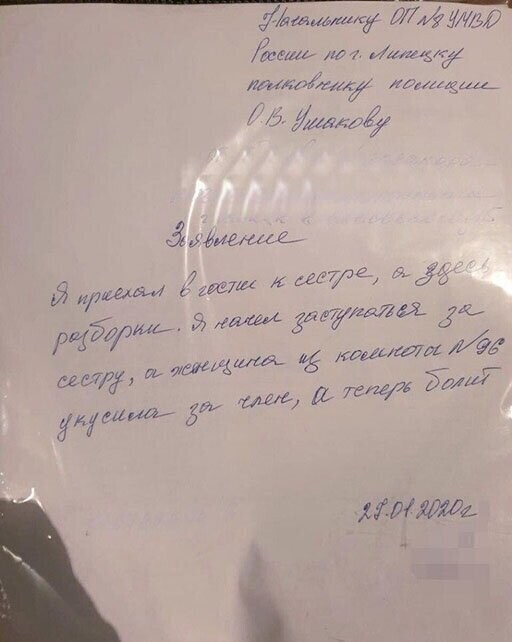 Начальнику ОП №8 УМВД
России по г. Липецку
полковнику полиции
О.В. Ушакову
Заявление
Я приехал в гости к сестре, а здесь
разборки. Я начел заступаться за
сестру, а женщина из комнота №96
укусила за член, а теперь болит
27.01.2020г